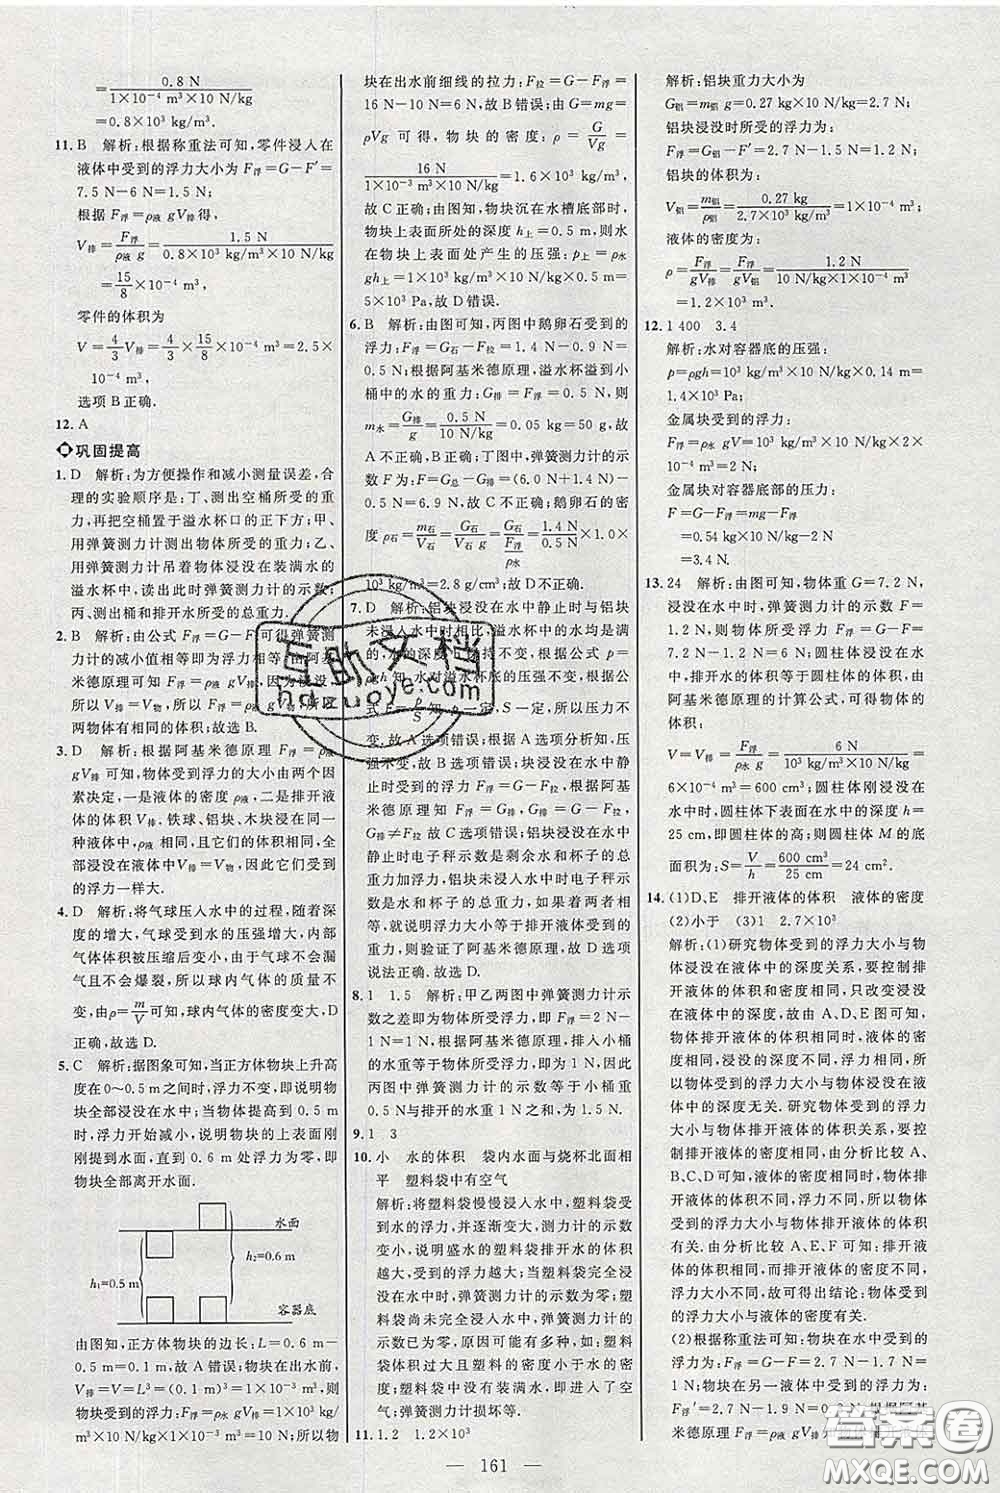 =0.8 N/(1×10⁻⁴ m³×10 N/kg)
=0.8×10³ kg/m³.
11. B 解析:根据称重法可知,零件浸入在
液体中受到的浮力大小为 F浮=G−F′=
7.5 N−6 N=1.5 N;
根据 F浮=ρ液 gV排得,
V排=F浮/(ρ液 g)=1.5 N/(0.8×10³ kg/m³×10 N/kg)=
15/8×10⁻⁴ m³;
零件的体积为
V=4/3 V排=4/3×15/8×10⁻⁴ m³=2.5×
10⁻⁴ m³,
选项 B 正确.
12. A
巩固提高
1. D 解析:为方便操作和减小测量误差,合
理的实验顺序是:丁、测出空桶所受的重
力,再把空桶置于溢水杯口的正下方;甲、
用弹簧测力计测出物体所受的重力;乙、
用弹簧测力计吊着物体浸没在装满水的
溢水杯中,读出此时弹簧测力计的示数;
丙、测出桶和排开水所受的总重力.
2. B 解析:由公式 F浮=G−F 可得弹簧测
力计的减小值相等即为浮力相等,由阿基
米德原理可知 F浮=ρ水 gV排,浸没,
所以 V排=V物,所以 V物相等,所以
两物体有相同的体积;故选 B.
3. D 解析:根据阿基米德原理 F浮=ρ液
gV排可知,物体受到浮力的大小由两个因
素决定,一是液体的密度 ρ液,二是排开液
体的体积 V排.铁球、铝块、木块浸没在同
一种液体中,ρ液相同,且它们的体积相同,
全部浸没在液体中V排=V物,因此它们受到
的浮力一样大.
4. D 解析:将气球压入水中的过程,随着深
度的增大,气球受到水的压强增大,内部
气体体积被压缩后变小,由于气球不会漏
气且不会爆裂,所以球内气体的质量不
变,由ρ=m/V可知,球内气体的密度变大,D
正确,故选 D.
5. C 解析:据图象可知,当正方体物块上升高
度在 0~0.5 m 之间时,浮力不变,即说明物
块全部浸没在水中;当物体提高到 0.5 m
时,浮力开始减小,说明物块的上表面刚
刚提到水面,直到 0.6 m 处浮力为零,即
物块全部离开水面.
水面
h₁=0.5 m
h₂=0.6 m
容器底
由图知,正方体物块的边长:L=0.6 m−
0.5 m=0.1 m;故 A 错误;物块在出水前,
V排=V=L³=(0.1 m)³=1×10⁻³ m³,则
物块受到的浮力:F浮=ρ液 gV排=1×10³ kg/
m³×10 N/kg×1×10⁻³ m³=10 N;所以物
块在出水前细线的拉力:F拉=G−F浮=
16 N−10 N=6 N,故 B 错误;由 G=mg=
ρVg 可得,物块的密度:ρ=G/Vg=
16 N/(1×10⁻³ m³×10 N/kg)=1.6×10³ kg/m³,
故 C 正确;由图知,物块沉在水槽底部时,
物块上表面所处的深度 h上=0.5 m,则水
在物块上表面处产生的压强:p上=ρ水
gh上=1×10³ kg/m³×10 N/kg×0.5 m=
5×10³ Pa,故 D 错误.
6. B 解析:由图可知,丙图中鹅卵石受到的
浮力:F浮=G石−F拉=1.4 N−0.9 N=
0.5 N;根据阿基米德原理,溢水杯溢到小
桶中的水的重力:G排=F浮=0.5 N,则
m水=G排/g=0.5 N/(10 N/kg)=0.05 kg=50 g,故
A 不正确,B 正确;丁图中,弹簧测力计的示
数 F为:F=G总−F浮=(6.0 N+1.4 N)−
0.5 N=6.9 N,故 C 不正确;鹅卵石的密
度 ρ石=m石/V石=G石/(V石 g)=G石/(F浮/ρ水)=1.4 N/0.5 N×1.0×
10³ kg/m³=2.8 g/cm³;故 D 不正确.
7. D 解析:铝块浸没在水中静止时与铝块
未浸入水中时相比,溢水杯中的水均是满
的,水的深度 h 保持不变,根据公式 p=
ρgh 知,水对溢水杯底的压强不变;根据公
式 F=p/S 知,p 一定,S 一定,所以压力不
变,故 A 选项错误;根据 A 选项分析知,压
强不变,故 B 选项错误;铝块浸没在水中静
止时受到的浮力 F浮=G−F拉,根据阿基
米德原理知 F浮=G排,F拉=G−G排,
G排≠F拉 故 C 选项错误;铝块浸没在水中
静止时电子秤示数是剩余水和杯子的总重
力加浮力,铝块未浸入水中时电子秤示数
是水和杯子的总重力.如果两者相等,则浮
力等于溢出水的重力,即浮力等于排开水
的重力,则验证了阿基米德原理,故 D 选项
说法正确.故选 D.
8. 1 1.5 解析:甲乙两图中弹簧测力计示
数之差即为物体所受浮力,即 F=2 N−
1 N=1 N;由阿基米德原理,排入小桶的水
重等于物体所受浮力,即等于 1 N,因此
丙图中弹簧测力计的示数等于小桶重
0.5 N与排开的水重 1 N 之和,为 1.5 N.
9. 1 3
10. 小 水的体积 袋内水面与烧杯北面相
平 塑料袋中有空气
解析:将塑料袋慢慢浸入水中,塑料袋受
到水的浮力,并逐渐变大,测力计的示数
变小,说明盛水的塑料袋排开水的体积
越大,受到的浮力越大;当塑料袋完全浸
没,弹簧测力计的示数为零;塑料袋
尚未完全浸入水中,但弹簧测力计的
示数已为零,原因可能有多种,如:塑料
袋体积过大且塑料的密度小于水的密
度;塑料袋中没有装满水,即进入了空
气;弹簧测力计损坏等.
11. 1.2 1.2×10³
解析:铝块重力大小为
G铝=m铝 g=0.27 kg×10 N/kg=2.7 N;
铝块浸没时所受的浮力为
F浮=G铝−F′=2.7 N−1.5 N=1.2 N;
铝块的体积为:
V铝=m铝/ρ铝=0.27 kg/(2.7×10³ kg/m³)=1×10⁻⁴ m³
液体的密度为:
ρ=F浮/(gV排)=F浮/(gV铝)=1.2 N/(10 N/kg×1×10⁻⁴ m³)
=1.2×10³ kg/m³.
12. 1 400 3.4
解析:水对容器底的压强:
p=ρgh=10³ kg/m³×10 N/kg×0.14 m=
1.4×10³ Pa;
金属块受到的浮力:
F浮=ρ水 gV=10³ kg/m³×10 N/kg×2×
10⁻⁴ m³=2 N
金属块对容器底部的压力:
F=G−F浮=mg−F浮
=0.54 kg×10 N/kg−2 N
=3.4 N.
13. 24 解析:由图可知,物体重 G=7.2 N,
浸没在水中时,弹簧测力计的示数 F=
1.2 N,则物体所受浮力 F浮=G−F=
7.2 N−1.2 N=6 N;圆柱体浸没在水中
时,排开水的体积等于圆柱体的体积,由
阿基米德原理的计算公式,可得物体的
体积:
V=V排=F浮/(ρ水 g)=6 N/(1×10³ kg/m³×10 N/kg)=
6×10⁻⁴ m³=600 cm³;圆柱体刚好浸没在
水中时,圆柱体下表面在水中的深度 h=
25 cm,即圆柱体的高;则圆柱体 M 的底
面积为:S=V/h=600 cm³/25 cm=24 cm².
14. (1)D、E 排开液体的体积 液体的密度
(2)小于 (3)1 2.7×10³
解析:(1)研究物体受到的浮力大小与物
体浸没在液体中的深度关系,要控制排
开液体的体积和密度相同,只改变浸没
在液体中的深度,故由 A、D、E 图可知,
物块排开液体的体积相同,液体的密
度相同,浸没的深度不同,浮力相同,所
以物体受到的浮力大小与物体浸没在液
体中的深度无关.研究物体受到的浮力
大小与物体排开液体的体积关系,要控
制排开液体的密度相同,由分析比较 A、
B、C、D 可知:液体密度相同,物体排开液
体的体积不同,浮力不同,所以物体受到
的浮力大小与物体排开液体的体积有关.
由分析比较 A、E、F 可知:排开液体
的体积相同,液体的密度不同,浮力
不同,故可以得出结论:物体受到的浮力
大小与液体的密度有关.
(2)根据称重法可知:物体在水中受到的
浮力为:F浮=G−F=2.7 N−1.7 N=1 N
物块在另一液体中受到的浮力为:
F浮′=2.7 N−1.9 N=0.8 N,根据阿基
米德原理 F浮=ρ液 gV排
互助文档
hdzuoye.com
答案圈
MXQE.COM
— 161 —